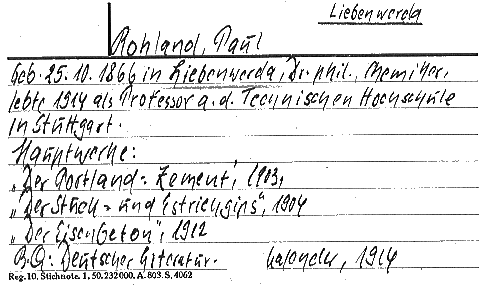 Liebenwerda
Rohland, Paul
geb. 25.10.1866 in Liebenwerda, Dr. phil., Chemiker,
lebte 1914 als Professor a. d. Technischen Hochschule
in Stuttgart.
Hauptwerke:
„Der Portland-Zement", 1903,
„Der Stuck- und Estrichgips", 1904
„Der Eisenbeton", 1912
Deutscher Literatur- Kalender, 1914
Reg. 10. Stichnote. 1, 50. 232000. A. 803. S. 4062